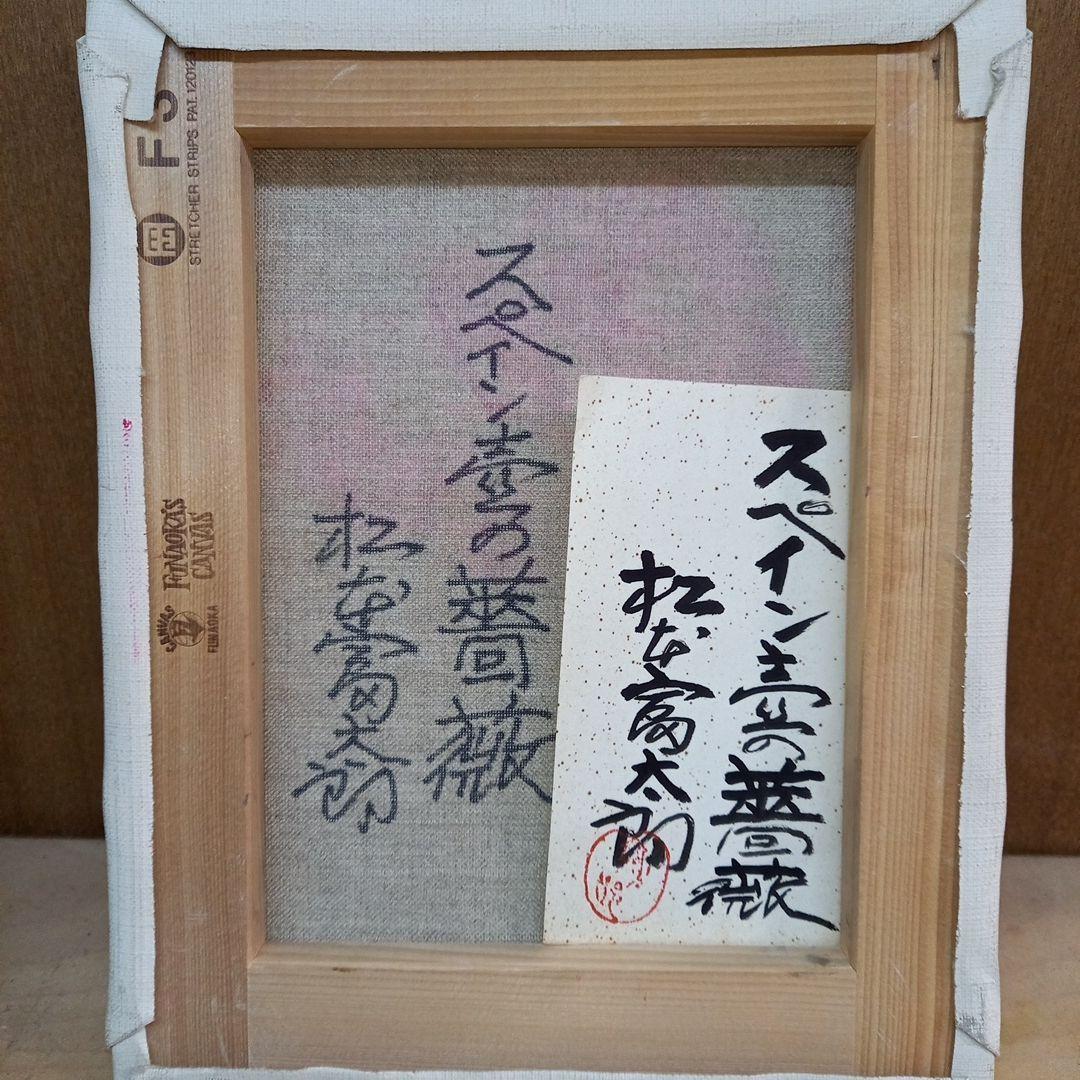 スペイン壺の薔薇
松本富太郎
スペイン壺の薔薇
松本富太郎
STRETCHER STRIPS PAT.12012
FUNAOKA'S
CANVAS
FUNAOKA